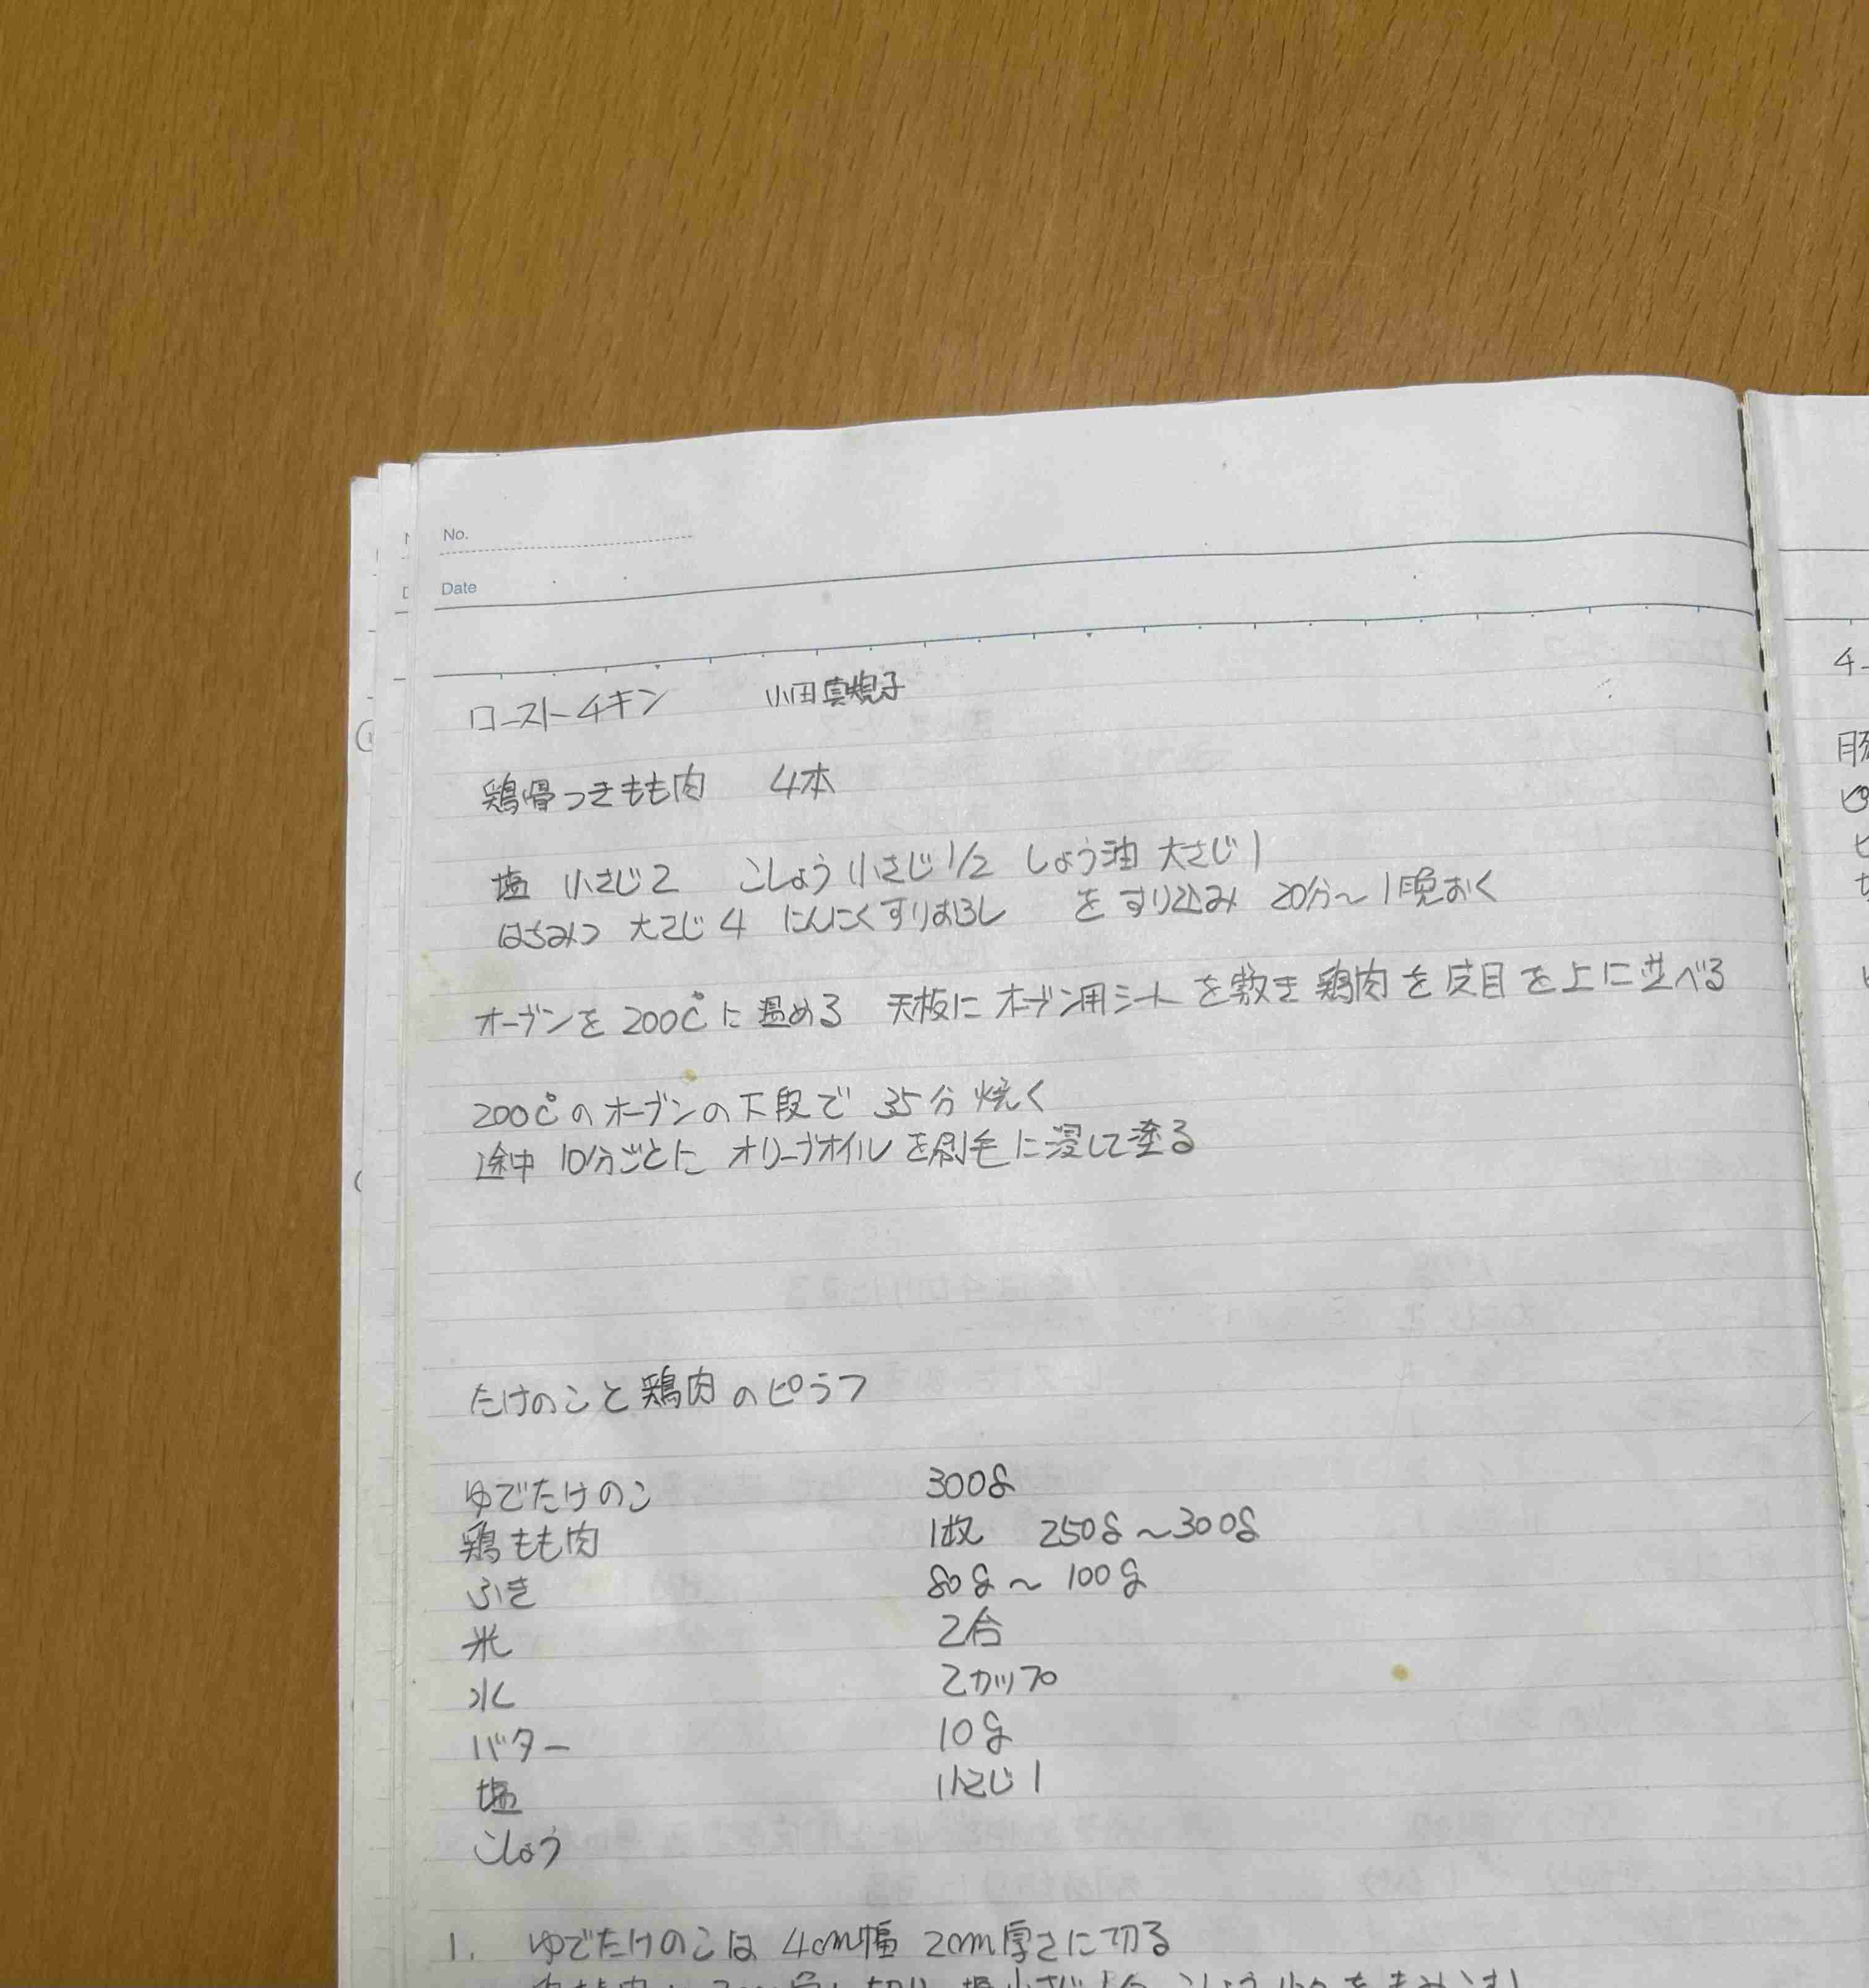 No.
Date
ローストチキン 小田真規子
鶏骨つきもも肉 4本
塩 小さじ2 こしょう 小さじ1/2 しょう油 大さじ1
はちみつ 大さじ4 にんにくすりおろし をすり込み 20分〜1晩おく
オーブンを200℃に温める 天板にオーブン用シートを敷き 鶏肉を皮目を上に並べる
200℃のオーブンの下段で 35分 焼く
途中 10分ごとに オリーブオイルを刷毛に浸して塗る
たけのこと鶏肉のピラフ
ゆでたけのこ 300g
鶏もも肉 1枚 250g〜300g
ふき 80g〜100g
米 2合
水 2カップ
バター 10g
塩 小さじ1
こしょう
1. ゆでたけのこは 4cm幅 2cm厚さに切る